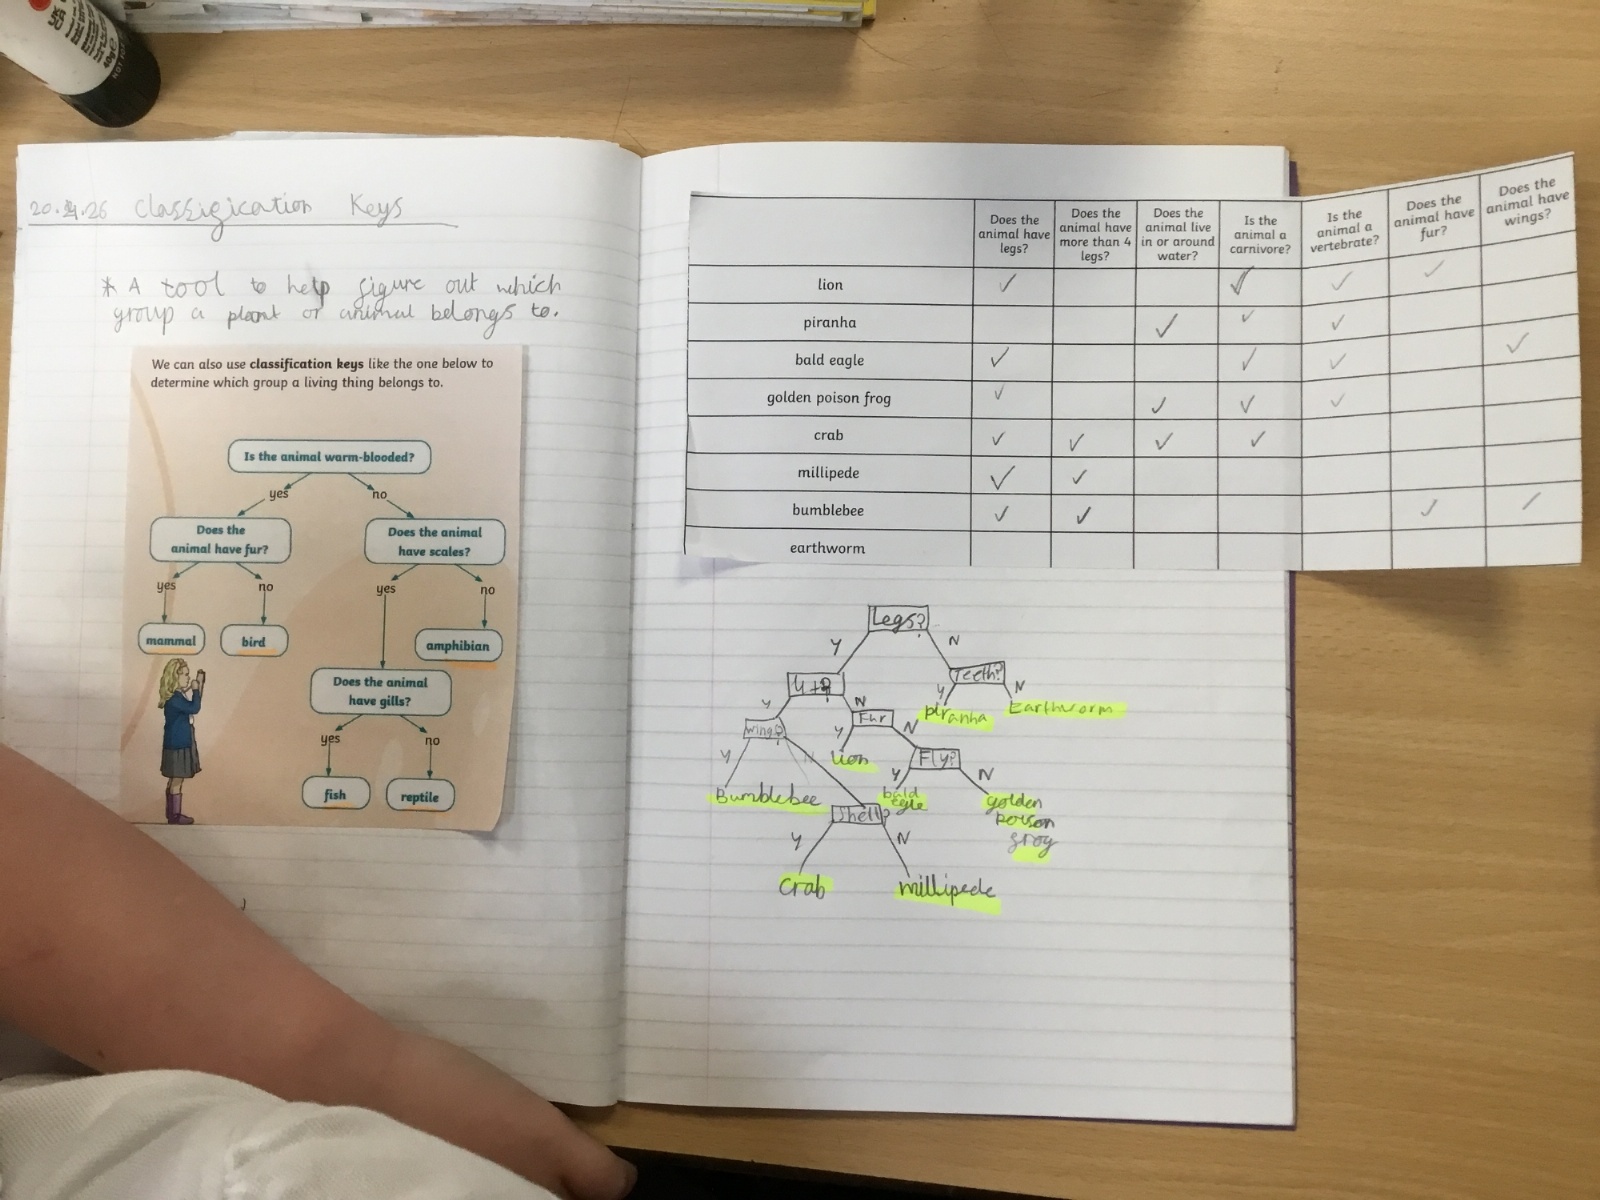 40g
20.4.26 Classigication Keys
* A tool to help figure out which
group a plant or animal belongs to.
We can also use classification keys like the one below to
determine which group a living thing belongs to.
Is the animal warm-blooded?
yes no
Does the
animal have fur?
Does the animal
have scales?
yes no yes no
mammal bird amphibian
Does the animal
have gills?
yes no
fish reptile
Does the
animal have
legs?
Does the
animal have
more than 4
legs?
Does the
animal live
in or around
water?
Is the
animal a
carnivore?
Is the
animal a
vertebrate?
Does the
animal have
fur?
Does the
animal have
wings?
lion ✓ ✓ ✓ ✓
piranha ✓ ✓ ✓
bald eagle ✓ ✓ ✓ ✓
golden poison frog ✓ ✓ ✓ ✓
crab ✓ ✓ ✓ ✓
millipede ✓ ✓
bumblebee ✓ ✓ ✓ ✓
earthworm
Legs?
Y N
Teeth?
Y N Y N
piranha Earthworm
Wings? Fur
Y N Y N
lion Fly?
Y N
Bumblebee bald
egle
golden
poison
grog
Shell?
Y N
Crab millipede